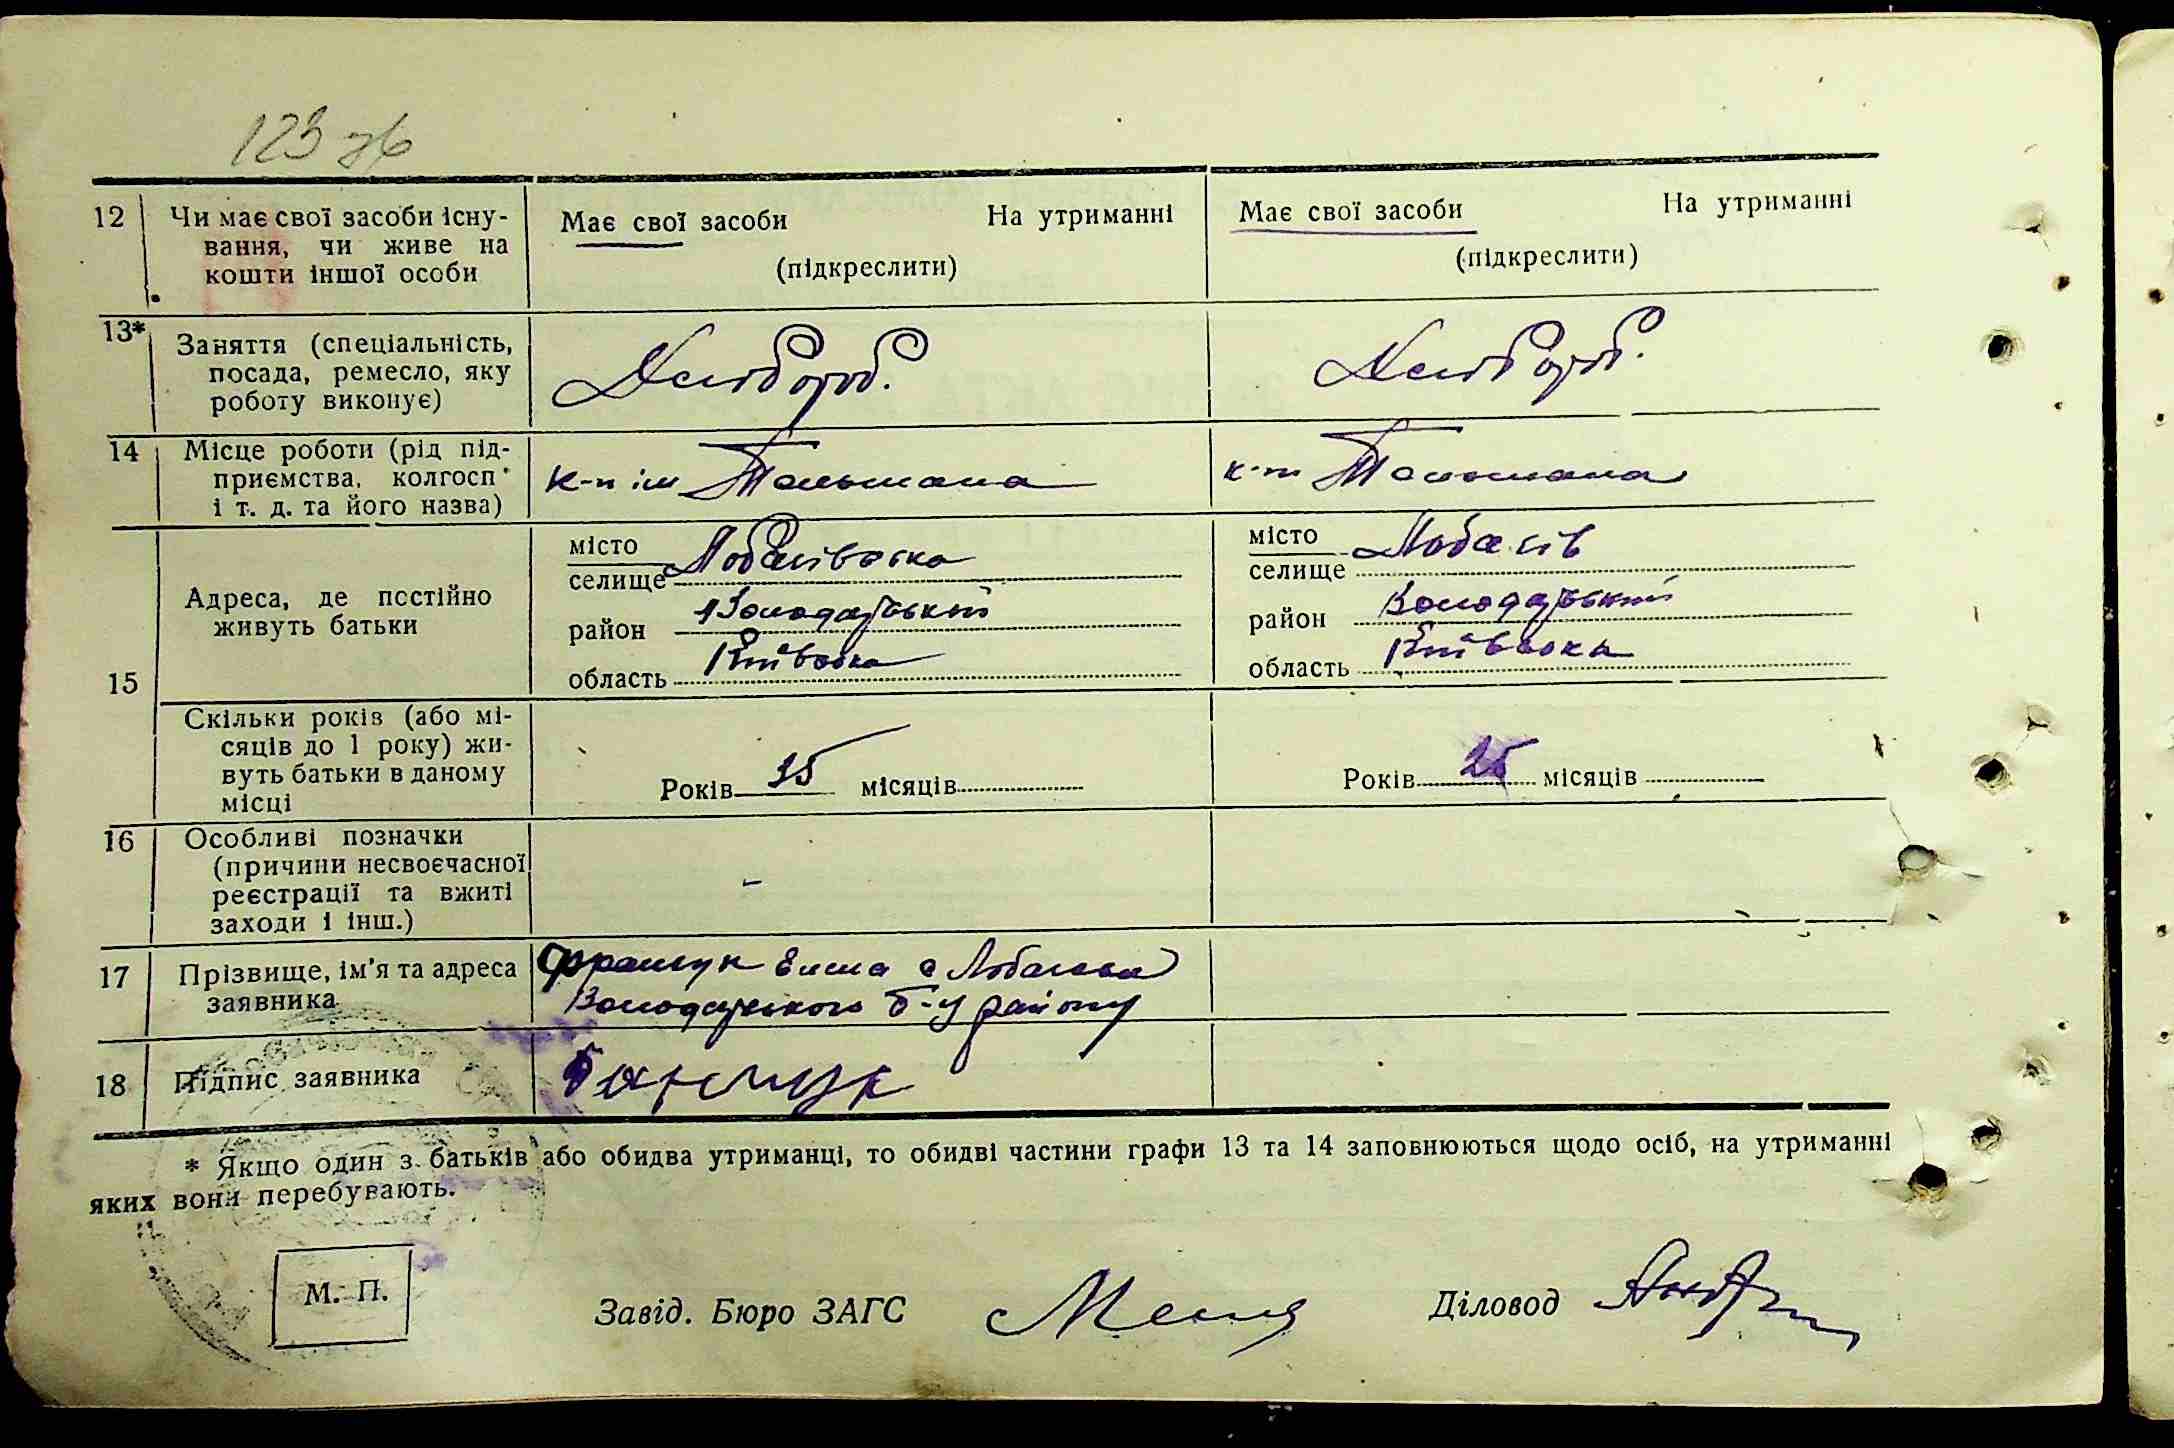 123 зв
12 Чи має свої засоби існу- Має свої засоби На утриманні Має свої засоби На утриманні
вання, чи живе на
кошти іншої особи (підкреслити) (підкреслити)
13* Заняття (спеціальність,
посада, ремесло, яку
роботу виконує)
14 Місце роботи (рід під-
приємства, колгосп
і т. д. та його назва)
к-п ім Тельмана к-п Тельмана
15 Адреса, де постійно
живуть батьки
місто
селище
район Володарський
область Київська
місто
селище
район Володарський
область Київська
Скільки років (або мі-
сяців до 1 року) жи-
вуть батьки в даному
місці
Років 35 місяців Років 25 місяців
16 Особливі позначки
(причини несвоєчасної
реєстрації та вжиті
заходи і інш.)
17 Прізвище, ім'я та адреса
заявника
Володарського району
18 Підпис заявника
* Якщо один з батьків або обидва утриманці, то обидві частини графи 13 та 14 заповнюються щодо осіб, на утриманні
яких вони перебувають.
М. П.
Завід. Бюро ЗАГС Діловод